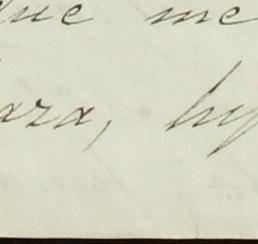 que me
ara, hy